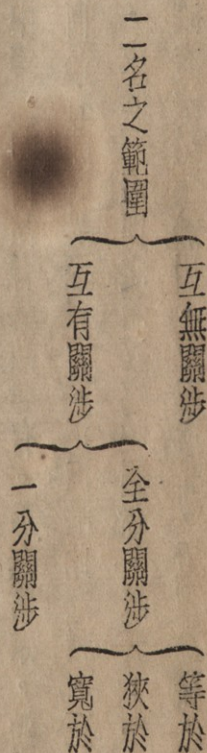 二名之範圍
互無關涉
互有關涉
全分關涉
一分關涉
等於
狹於
寬於